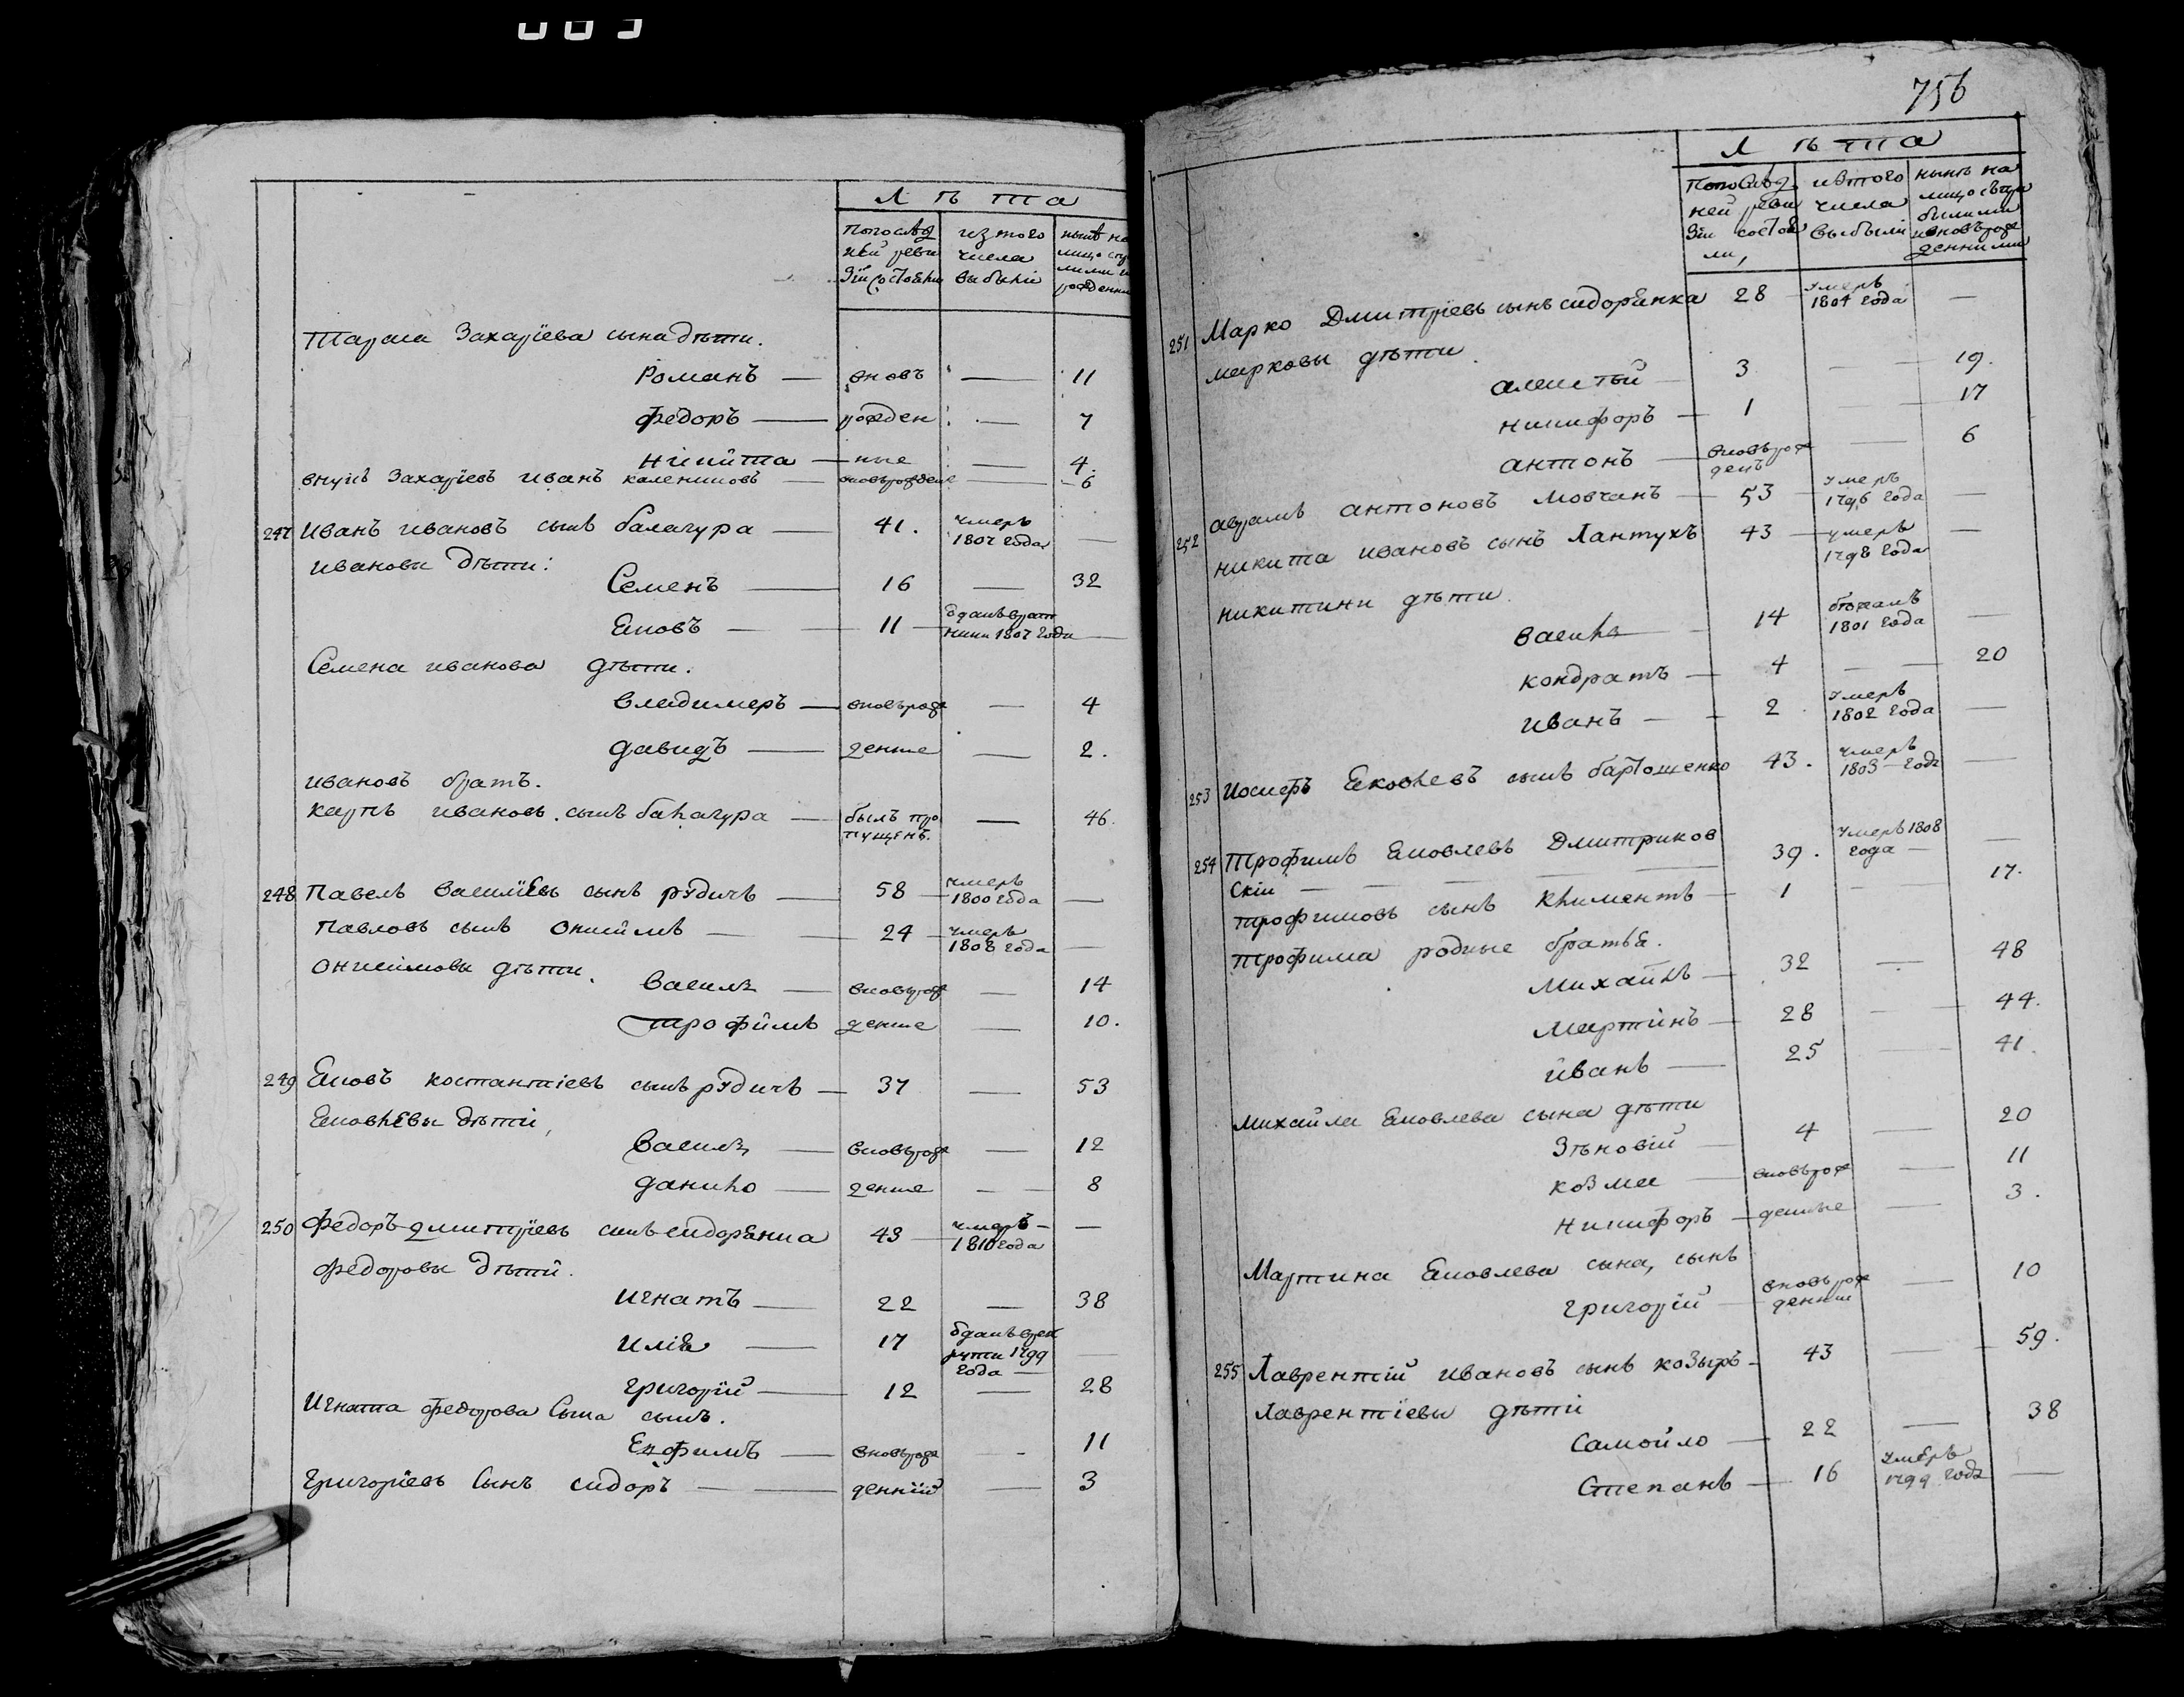 756
Лѣта
по послѣд
ней реви
зіи состояли
изъ того
числа
выбыли
нынѣ на
лицо
Тараса Захаріева сына дѣти.
Романъ — вновъ — 11
Федоръ — рожден — 7
Никита — ные — 4.
внукъ Захаріевъ иванъ калениковъ — вновърожденъ — 6
247 Иванъ ивановъ сынъ балагура — 41. умеръ 1807 года —
ивановы дѣти:
Семенъ — 16 — 32
Яковъ — 11 — 1807 года —
Семена иванова дѣти.
владимеръ — вновърож — 4
давидъ — деные — 2.
ивановъ братъ.
карпъ ивановъ сынъ балагура — былъ про пущенъ. — 46.
248 Павелъ василіевъ сынъ рудичъ — 58 — умеръ 1800 года —
Павловъ сынъ онисимъ — 24 — умеръ 1808 года —
онисимовы дѣти.
василь — вновърож — 14
трофимъ деные — 10.
249 Яковъ костантіевъ сынъ рудичъ — 37 — 53
Яковлевы дѣти,
василь — вновърож — 12
данило — деные — 8
250 Федоръ дмитріевъ сынъ сидоренка 43 — умеръ 1810 года —
федоровы дѣти.
Игнатъ — 22 — 38
илія — 17 1799 года —
григорій — 12 — 28
Игната федорова сына сынъ.
Ефимъ — вновърож — 11
Григоріевъ сынъ сидоръ — денній — 3
Лѣта
по послѣд
ней реви
зіи состоя
ли,
изтого
числа
выбыли
нынѣ на
лицо съ при
былими
и вновърож
денними
251 Марко Дмитріевъ сынъ сидоренка 28 — умеръ 1804 года —
марковы дѣти.
алексѣй — 3 — 19.
никифоръ — 1 — 17
антонъ — вновърож денъ — 6
252 аврамъ антоновъ мовчанъ — 53 — умеръ 1796 года —
никита ивановъ сынъ Лантухъ 43 — умеръ 1798 года —
никитини дѣти.
василь — 14 бѣжалъ 1801 года —
кондратъ — 4 — 20
иванъ — 2 умеръ 1802 года —
253 Иосифъ Яковлевъ сынъ бартошенко 43. умеръ 1803 года —
254 Трофимъ Яковлевъ Дмитриков
скій — 39. умеръ 1808 года —
трофимовъ сынъ климентъ — 1 — 17.
трофима родные братья.
михайлъ — 32 — 48
мартинъ — 28 — 44.
иванъ — 25 — 41.
михайла Яковлева сына дѣти
Зѣновій — 4 — 20
козма — вновърож — 11
никифоръ — денные — 3.
Мартина Яковлева сына, сынъ
григорій — вновърож — 10
255 Лаврентій ивановъ сынъ козыръ — 43 — 59.
Лаврентіевы дѣти
самойло — 22 — 38
Степанъ — 16 умеръ 1799 года —